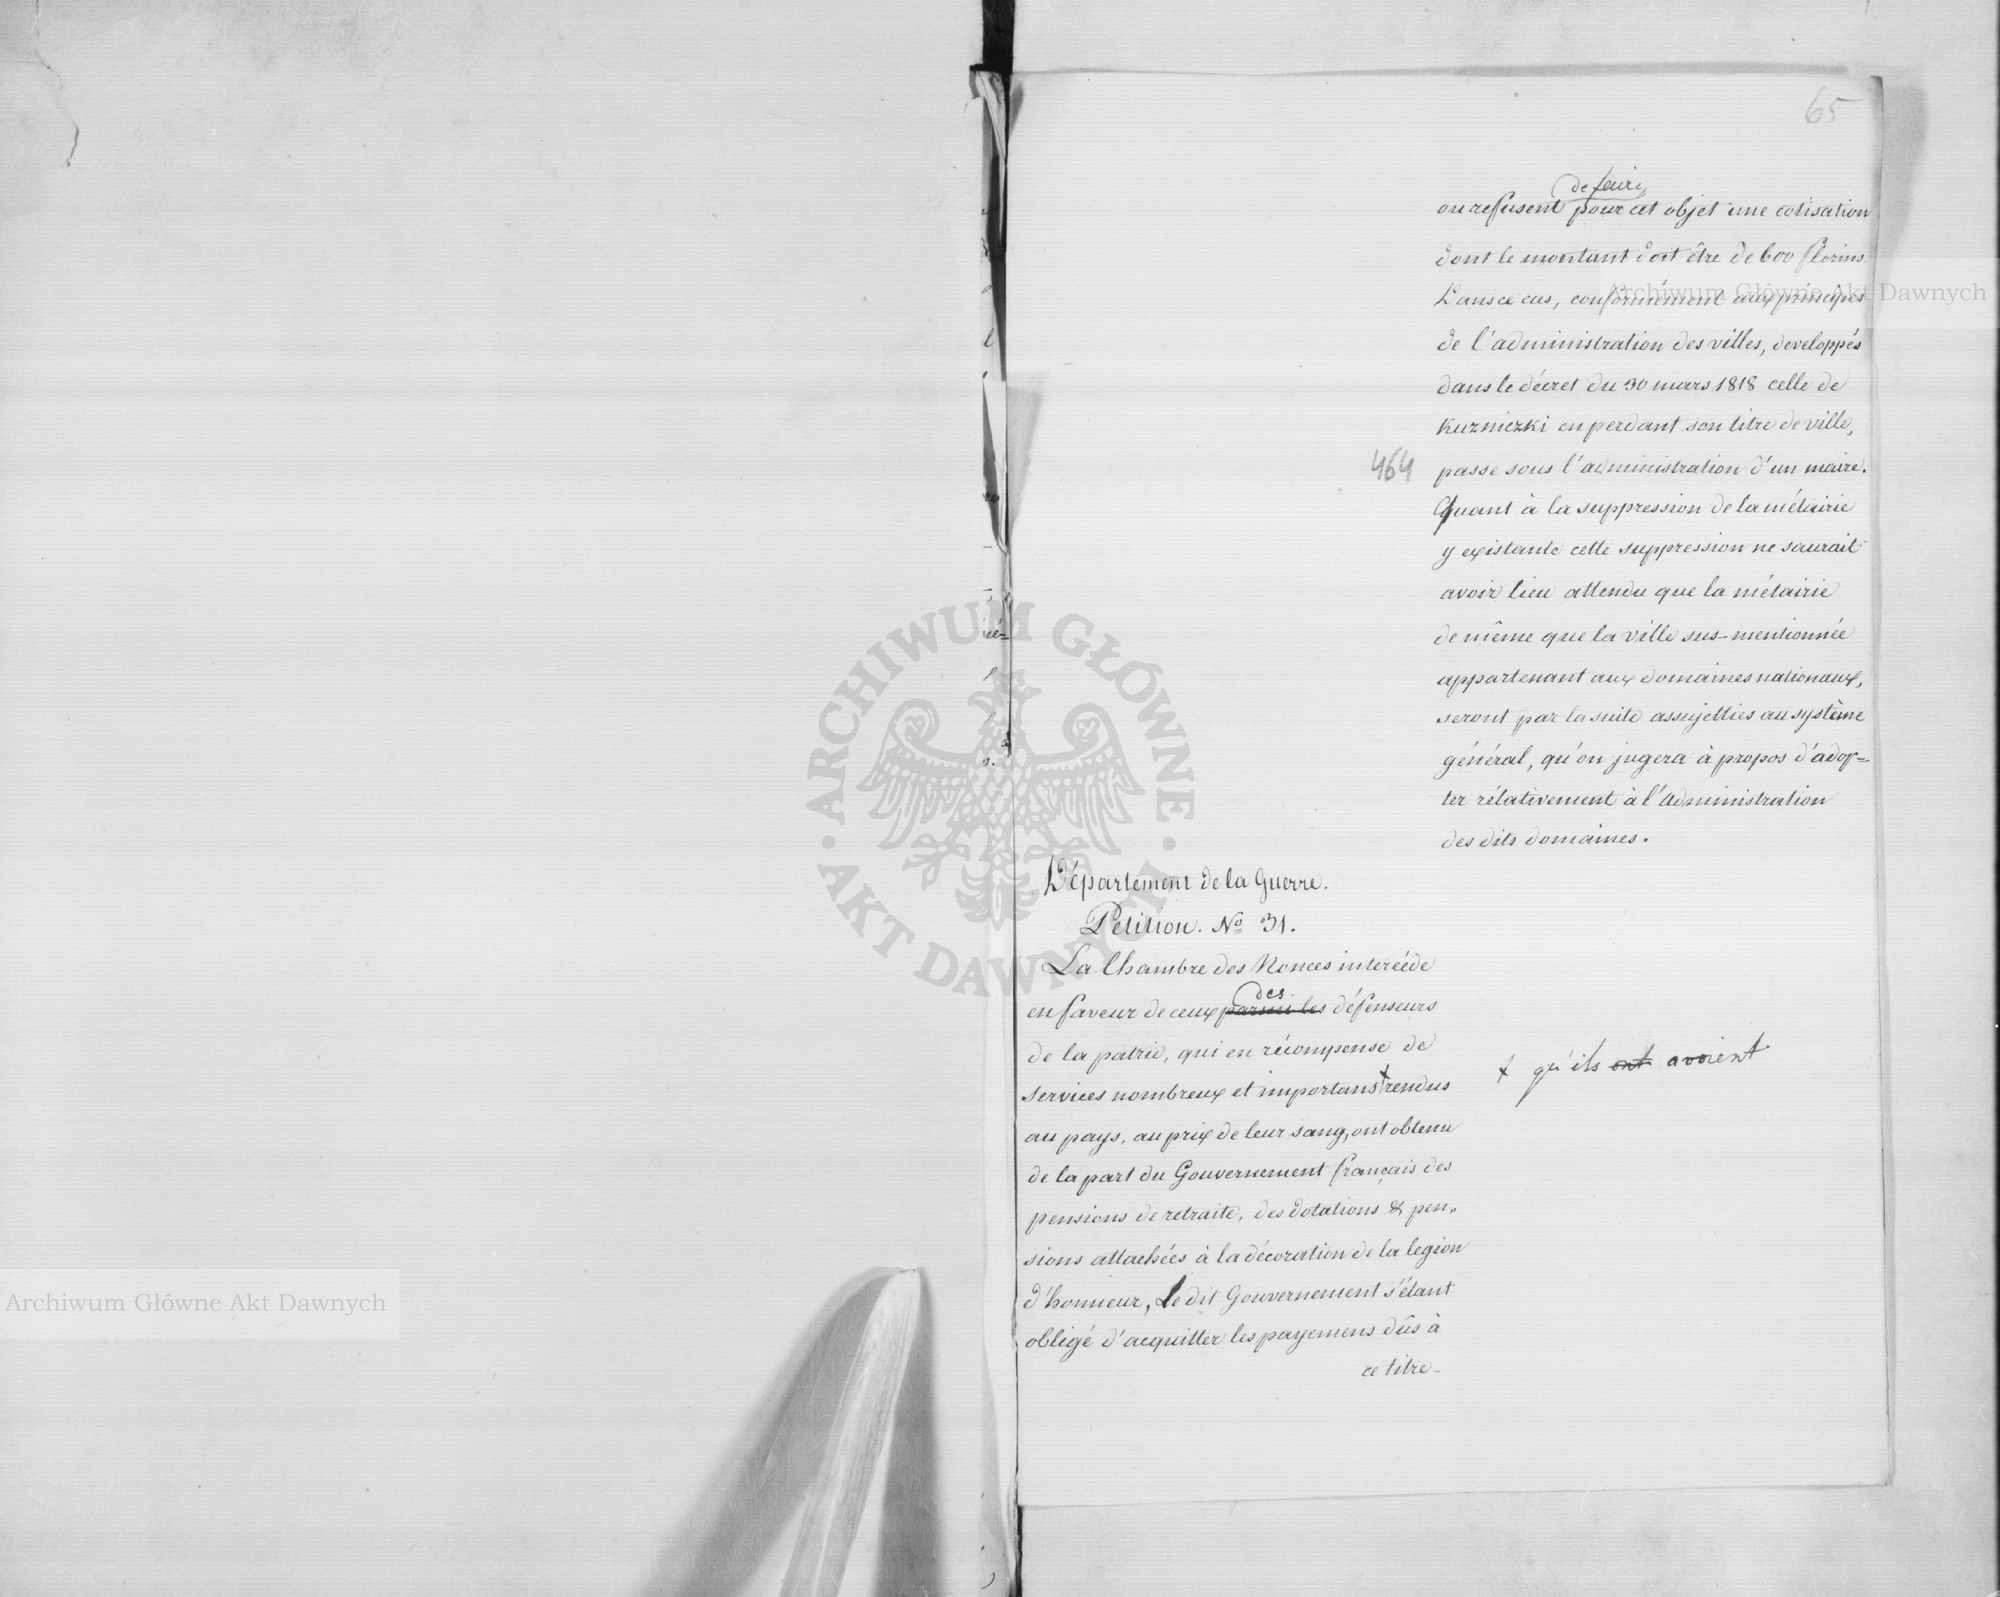 65
de faire
ou refusent pour cet objet une cotisation
dont le montant doit être de 600 florins.
Dans ce cas, conformément aux principes
de l'administration des villes, developpés
dans le décret du 30 mars 1818 celle de
Kuzniczki en perdant son titre de ville,
464 passe sous l'administration d'un maire.
Quant à la suppression de la métairie
y existante cette suppression ne saurait
avoir lieu attendu que la métairie
de même que la ville sus-mentionnée
appartenant aux domaines nationaux,
seront par la suite assujetties au système
général, qu'on jugera à propos d'adop=
ter rélativement à l'administration
des dits domaines.
Département de la Guerre.
Petition. No 31.
La Chambre des Nonces intercéde
des
en faveur de ceux parmi les défenseurs
de la patrie, qui en récompense de
services nombreux et importans + rendus
+ qu'ils ont avoient
au pays, au prix de leur sang, ont obtenu
de la part du Gouvernement français des
pensions de retraite, des dotations & pen,
sions attachées à la décoration de la legion
d'honneur, Le dit Gouvernement s'étant
obligé d'acquitter les payemens dûs à
ce titre-
ARCHIWUM GŁÓWNE AKT DAWNYCH
Archiwum Główne Akt Dawnych
Archiwum Główne Akt Dawnych